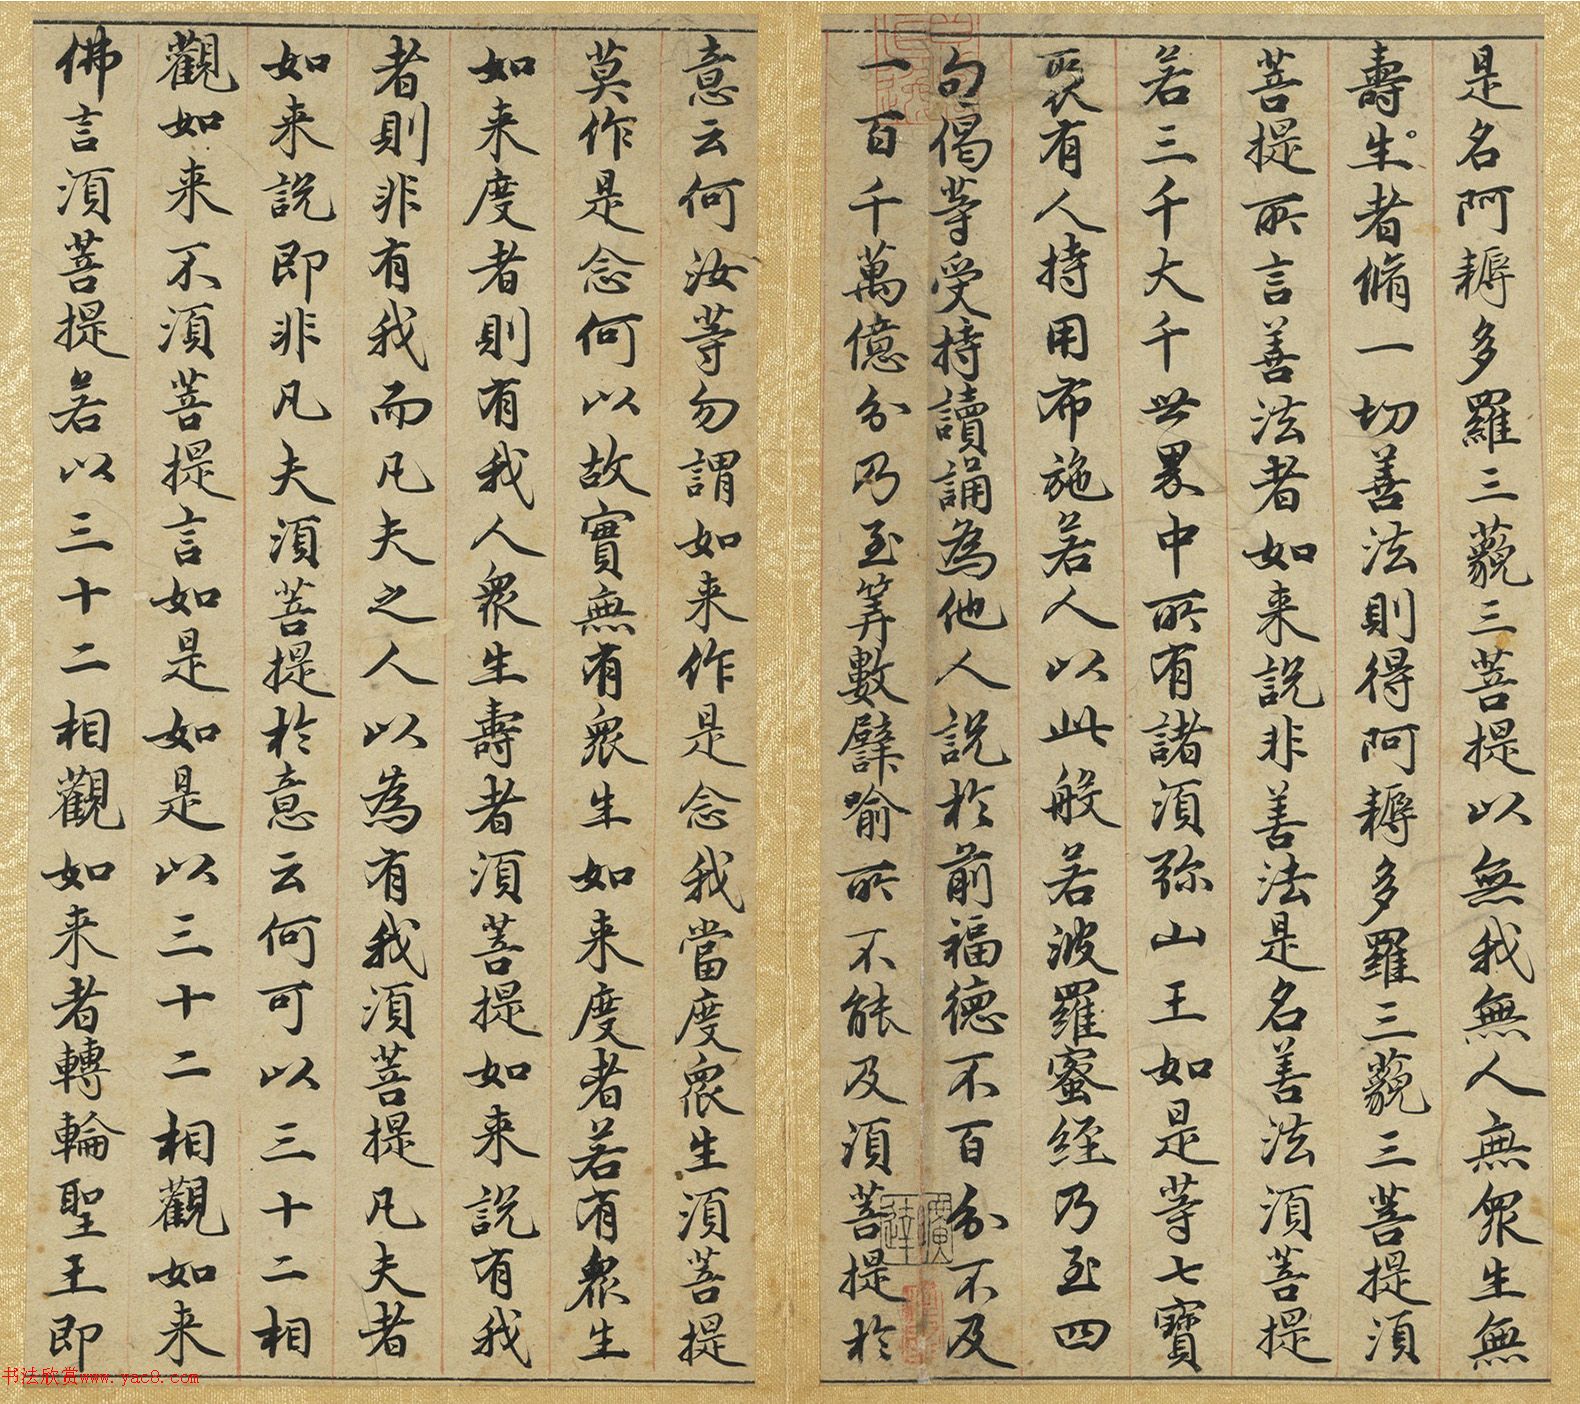 是名阿耨多羅三藐三菩提以無我無人無眾生無
壽生者脩一切善法則得阿耨多羅三藐三菩提須
菩提所言善法者如来說非善法是名善法須菩提
若三千大千世界中所有諸須弥山王如是等七寶
聚有人持用布施若人以此般若波羅蜜經乃至四
句偈等受持讀誦為他人說於前福德不百分不及
一百千萬億分乃至筭數譬喻所不能及須菩提於
意云何汝等勿謂如来作是念我當度眾生須菩提
莫作是念何以故實無有眾生如来度者若有眾生
如来度者則有我人眾生壽者須菩提如来說有我
者則非有我而凡夫之人以為有我須菩提凡夫者
如来說即非凡夫須菩提於意云何可以三十二相
觀如来不須菩提言如是如是以三十二相觀如来
佛言須菩提若以三十二相觀如来者轉輪聖王即
书法欣赏www.yac8.com